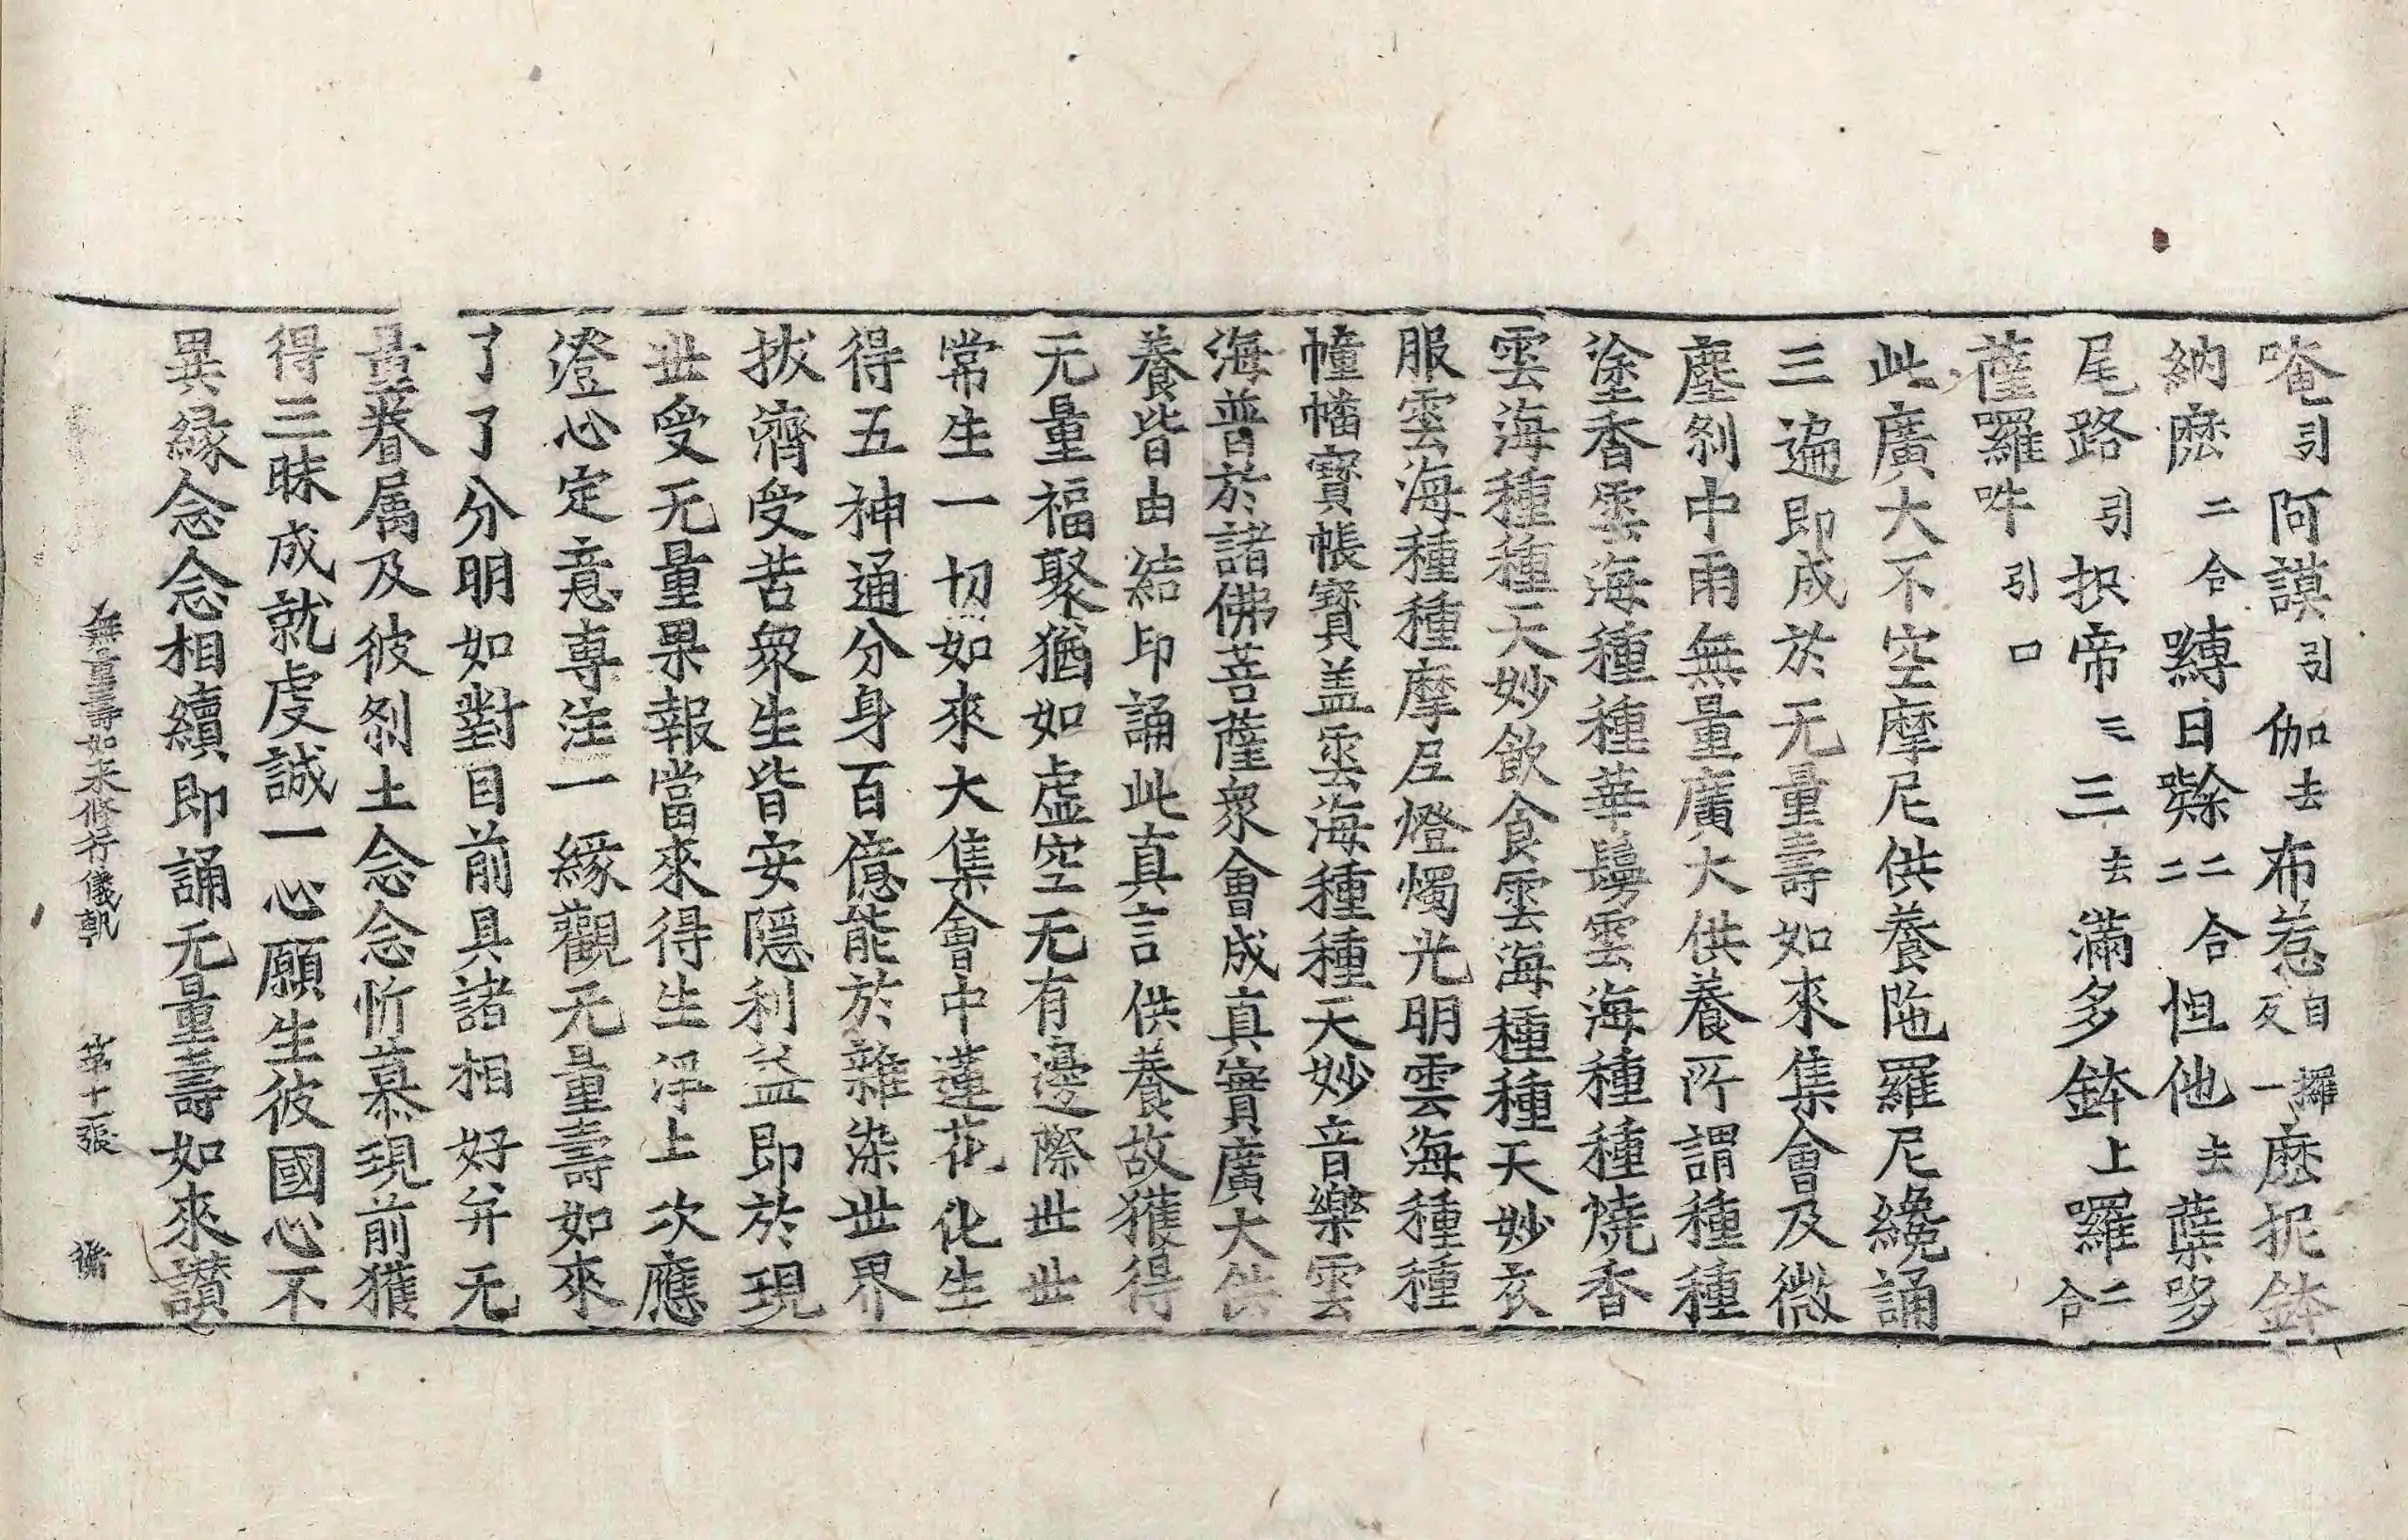 唵引阿謨引伽去布惹自反攞一麽抳鉢
納麽二合嚩日𡃤二合二怛他去蘖哆
尾路引抧帝三三去滿多鉢上囉二合
薩囉吽引口
此廣大不空摩尼供養陁羅尼纔誦
三遍即成於无量壽如來集會及微
塵刹中雨無量廣大供養所謂種種
塗香雲海種種華鬘雲海種種燒香
雲海種種天妙飲食雲海種種天妙衣
服雲海種種摩尼燈燭光明雲海種種
幢幡寶帳寶盖雲海種種天妙音樂雲
海普於諸佛菩薩衆會成真實廣大供
養皆由結印誦此真言供養故獲得
无量福聚猶如虛空无有邊際世世
常生一切如來大集會中蓮花化生
得五神通分身百億能於雜染世界
拔濟受苦衆生皆安隱利益即於現
世受无量果報當來得生淨土次應
澄心定意專注一緣觀无量壽如來
了了分明如對目前具諸相好并无
量眷属及彼刹土念念忻慕現前獲
得三昧成就虔誠一心願生彼國心不
異緣念念相續即誦无量壽如來讃
無量壽如来修行儀軌 第十一張